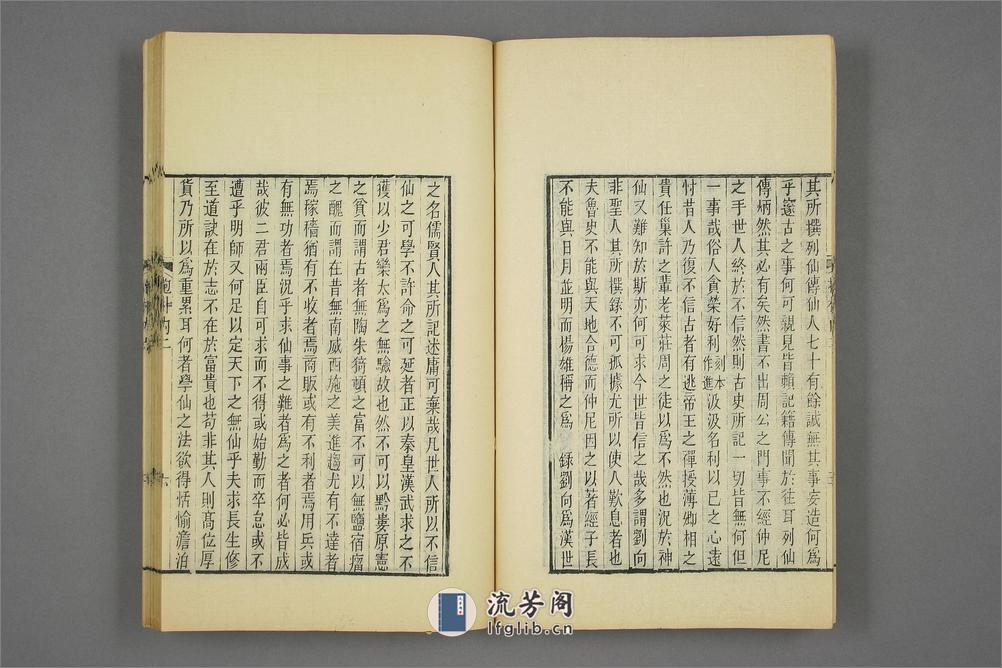 其所撰列仙傳仙人七十有餘誠無其事妄造何爲
乎邃古之事何可親見皆賴記籍傳聞於往耳列仙
傳炳然其必有矣然書不出周公之門事不經仲尼
之手世人終於不信然則古史所記一切皆無何但
一事哉俗人貪榮好利刻本作進汲汲名利以己之心遠
忖昔人乃復不信古者有逃帝王之禪授薄卿相之
貴任巢許之輩老萊莊周之徒以爲不然也況於神
仙又難知於斯亦何可求今世皆信之哉多謂劉向
非聖人其所撰錄不可孤據尤所以使人歎息者也
夫魯史不能與天地合德而仲尼因之以著經子長
不能與日月並明而楊雄稱之爲 錄劉向爲漢世
之名儒賢人其所記述庸可棄哉凡世人所以不信
仙之可學不許命之可延者正以秦皇漢武求之不
獲以少君欒太爲之無驗故也然不可以黔婁原憲
之貧而謂古者無陶朱猗頓之富不可以無鹽宿瘤
之醜而謂在昔無南威西施之美進趨尤有不達者
焉稼穡猶有不收者焉商販或有不利者焉用兵或
有無功者焉況乎求仙事之難者爲之者何必皆成
哉彼二君兩臣自可求而不得或始勤而卒怠或不
遭乎明師又何足以定天下之無仙乎夫求長生修
至道訣在於志不在於富貴也苟非其人則高位厚
貨乃所以爲重累耳何者學仙之法欲得恬愉澹泊
六
流芳阁
lfglib.cn